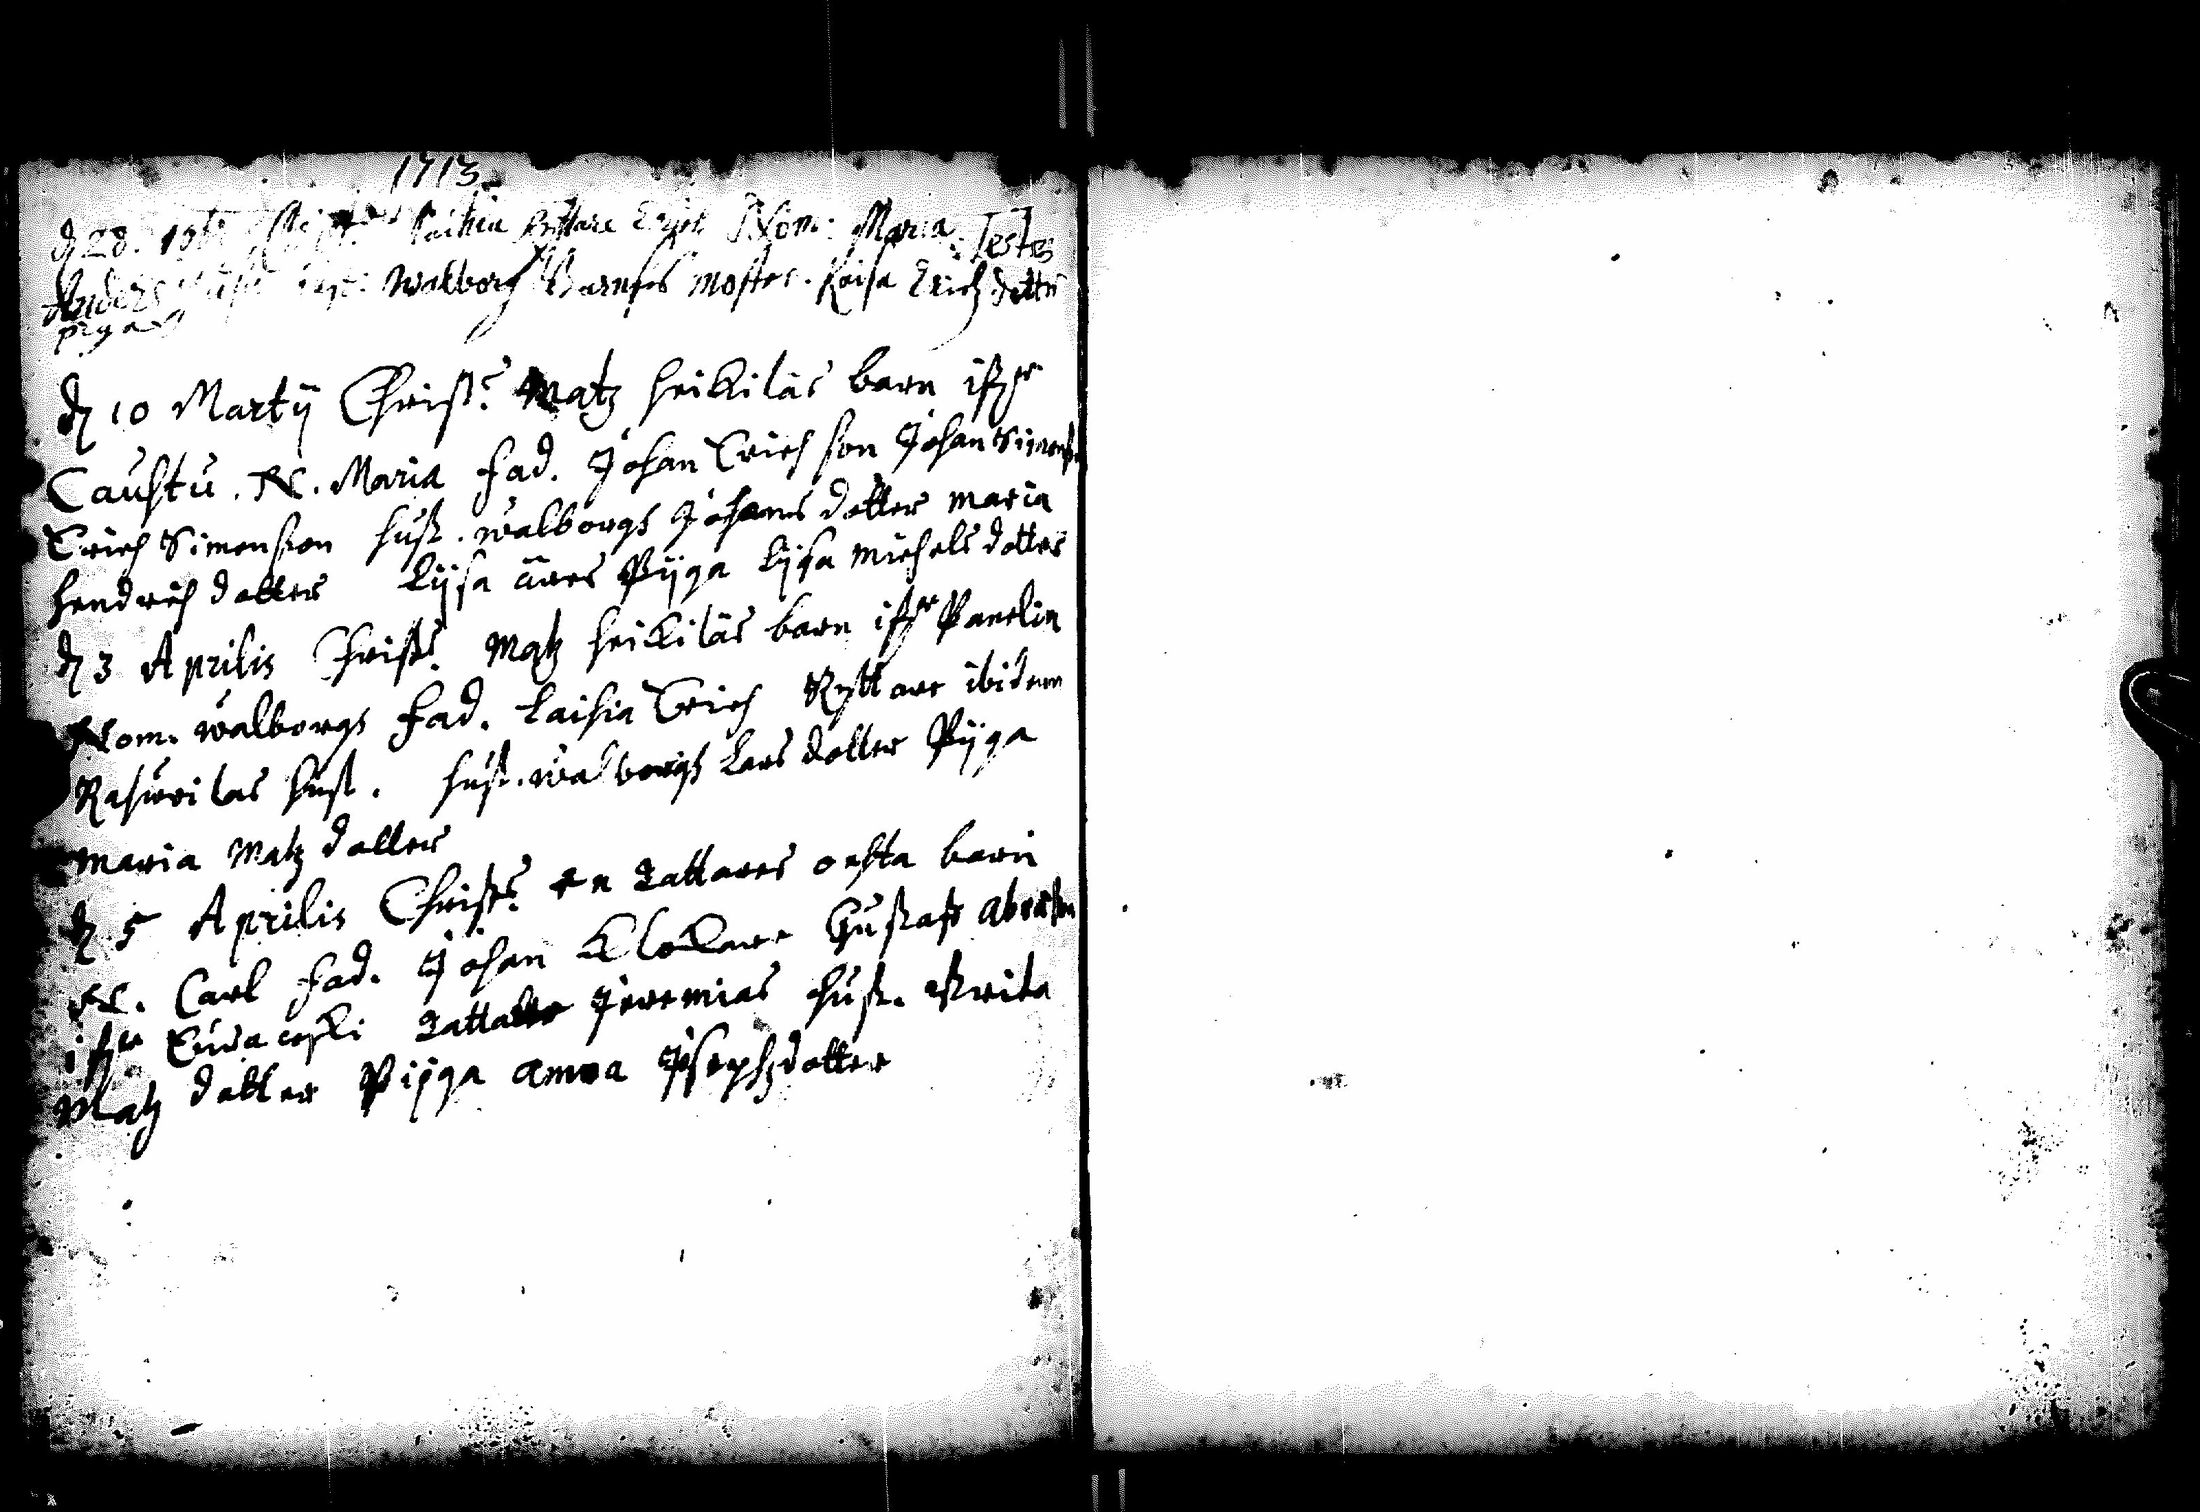 1713
d 28. Laihia Ryttare Erich Nom: Maria. Testes
Anders Walborg Barnsens Moster. Kaisa Erichzdotter
piga
d 10 Martij Christ: Matz heikiläs barn ifr
Caustu. N. Maria fad. Johan Erichson Johan Simonson
Erich Simonson hust. walborgh Johans dotter maria
hendrich dotter Lijsa Pijga Lijsa michels dotter
d 3 Aprilis Christ: Matz heikiläs barn ifr Panelia
Nom. walborgh fad. Laihia Erich Ryttare ibidem
hust. hust. walborgh Lars dotter Pijga
maria Matz dotter
d 5 Aprilis Christ: en Tattares oechta barn
N. Carl fad. Johan Klockare Gustaf
ifr Tattare Jeremias hust. Brita
Matz dotter Pijga anna Josephzdotter